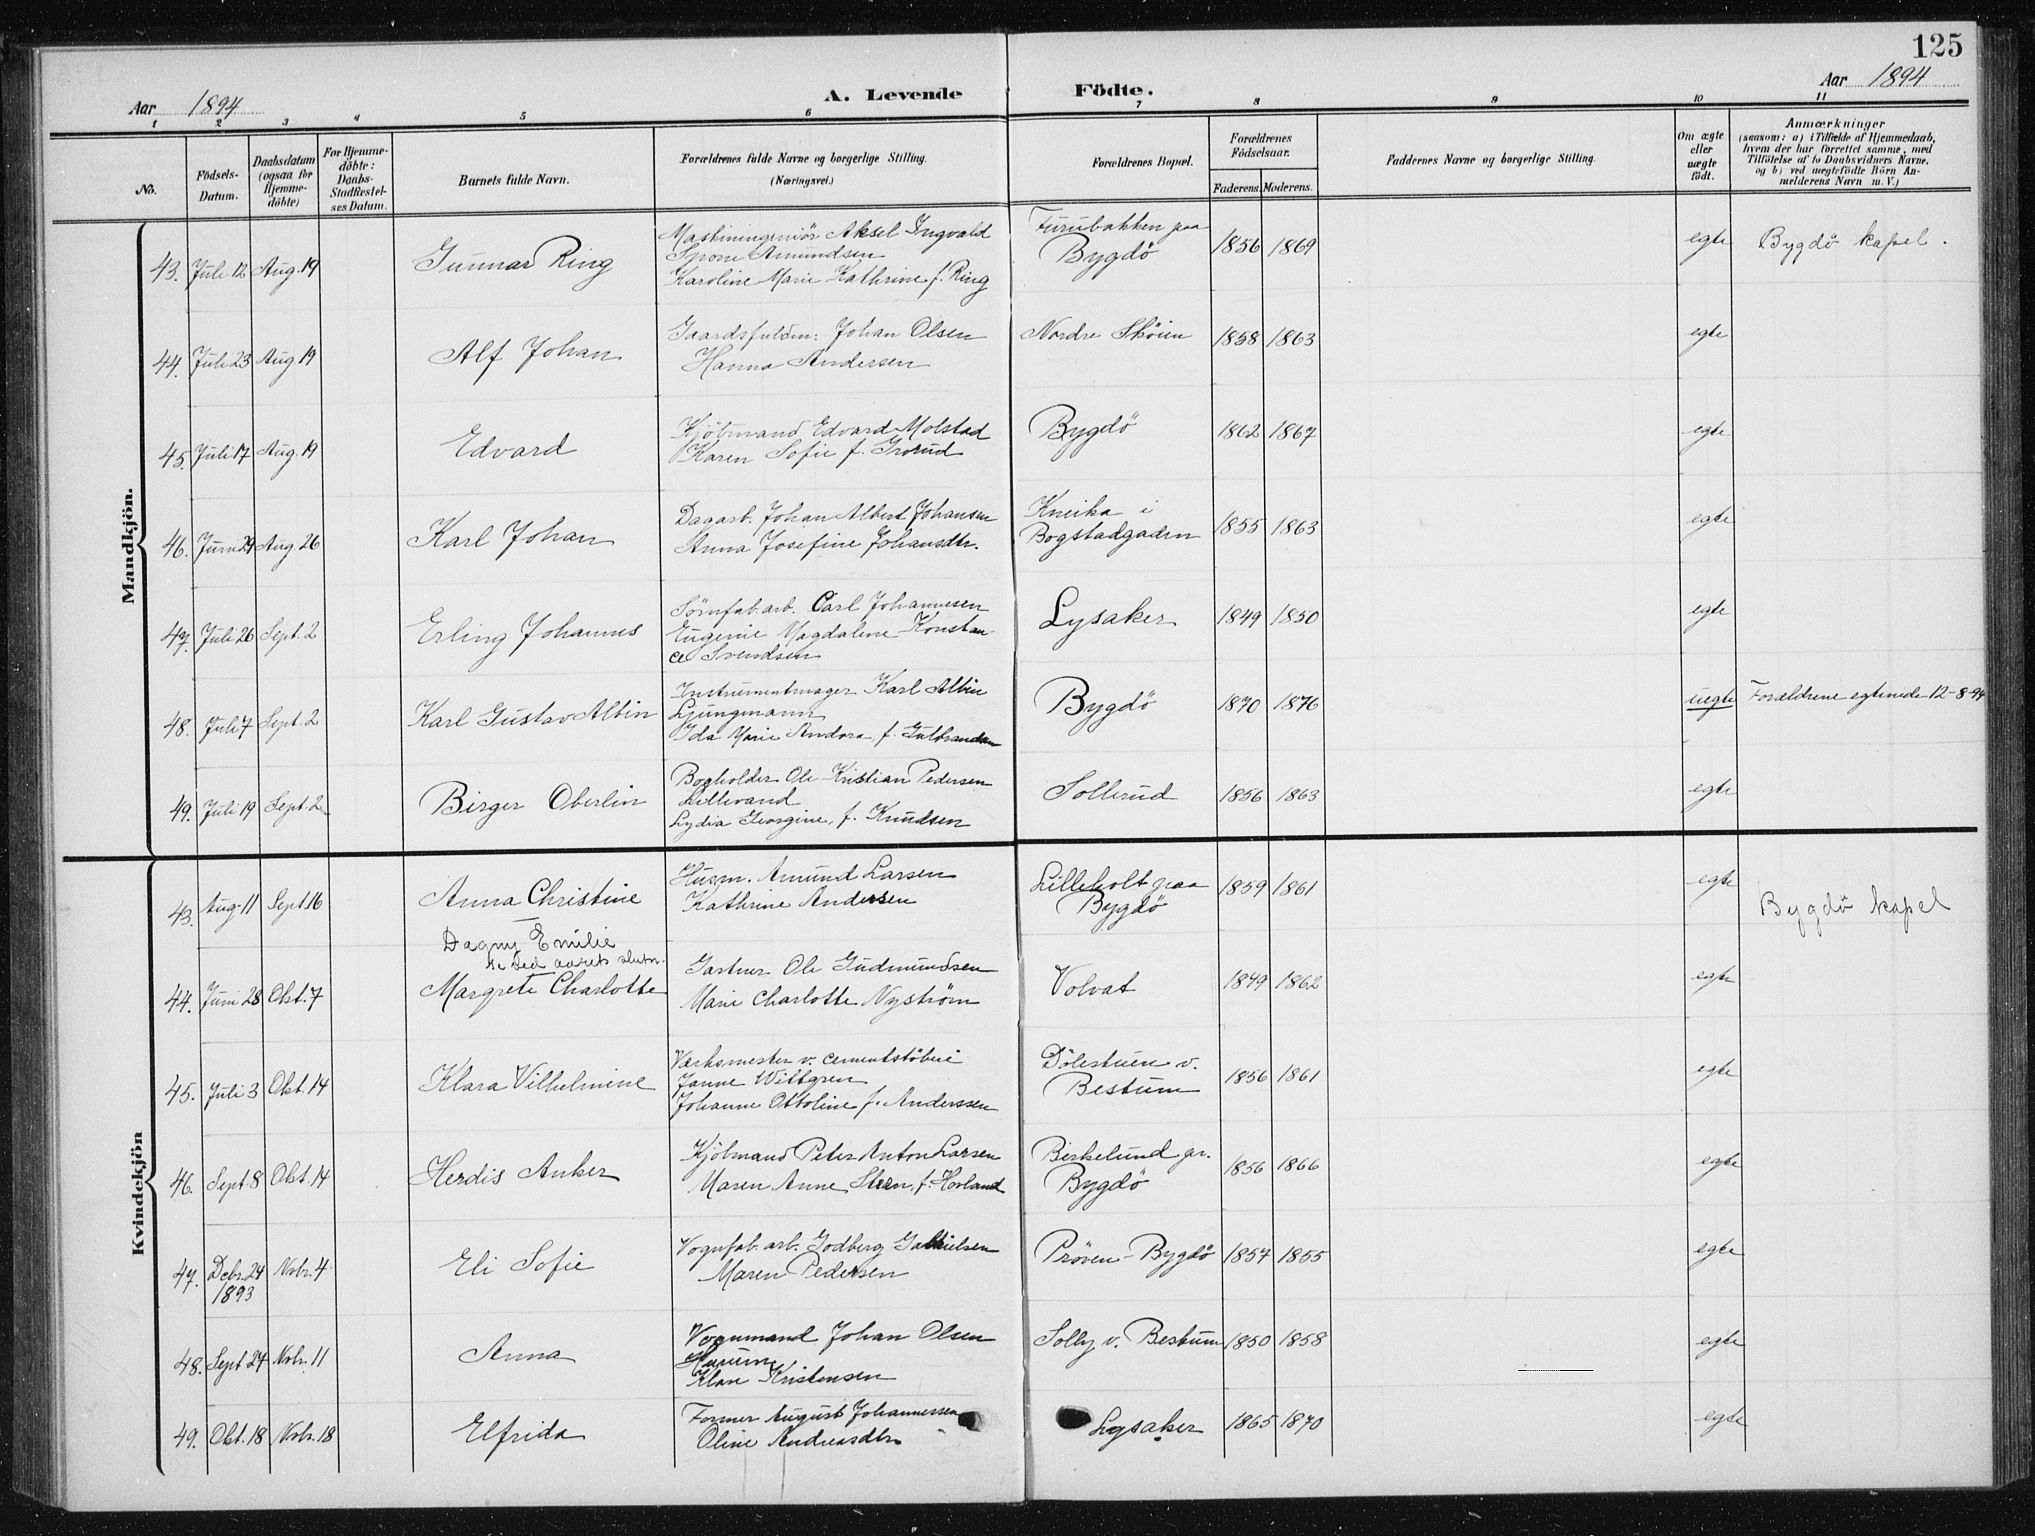 125
Aar 1894
A. Levende Födte.
Aar 1894
1 2 3 4 5 6 7 8 9 10 11
No.
Födsels-Datum.
Daabsdatum (ogsaa for Hjemme-döbte)
For Hjemme-döbte: Daabs-Stadfæstel-ses Datum.
Barnets fulde Navn.
Forældrenes fulde Navne og borgerlige Stilling.
(Næringsvei.)
Forældrenes Bopæl.
Forældrenes Födselsaar.
Faderens. Moderens.
Faddernes Navne og borgerlige Stilling.
Om ægte eller uægte födt.
Anmærkninger
(saasom: a) i Tilfælde af Hjemmedaab,
hvem der har forrettet samme, med
Tilföielse af to Daabsvidners Navne.
og b) ved uægtefödte Börn An-
melderens Navn m. V.)
Mandkjön.
43. Juli 12 Aug. 19 Gunnar Ring
Maskiningeniör Aksel Ingvald
Amundsen
Karoline Marie Kathrine f. Ring
Furubakken paa
Bygdö
1856 1869 egte Bygdö kapel.
44. Juli 23 Aug 19 Alf Johan
Gaardsfuldm: Johan Olsen
Hanna Andersen
Nordre Sköien 1858 1863 egte
45. Juli 17 Aug. 19 Edvard
Kjöbmand Edvard Molstad
Karen Sofie f. Grorud
Bygdö 1862 1867 egte
46. Juni 29 Aug 26 Karl Johan
Dagarb. Johan Albert Johansen
Anna Josefine Johansdtr.
Kneika i
Bogstadgaden
1855 1863 egte
47. Juli 26 Sept. 2 Erling Johannes
Sömfab. arb. Carl Johannesen
Eugenie Magdalene Konstan-
ce Svendsen
Lysaker 1849 1850 egte
48. Juli 7 Sept. 2 Karl Gustav Albin
Instrumentmager Karl Albin
Ljungmann
Ida Marie Andora, f. Gulbrandsen
Bygdö 1870 1876 uegte Forældrene egteviede 12-8-94
49. Juli 19 Sept. 2 Birger Oberlin
Bogholder Ole Kristian Pedersen
Lillevand
Lydia Georgine, f. Knudsen
Sollerud 1856 1863 egte
Kvindekjön
43. Aug. 11 Sept. 16 Anna Christine
Husm. Amund Larsen
Kathrine Andersen
Lilleholt paa
Bygdö
1859 1861 egte Bygdö kapel
Dagny Emilie
se ved aarets slutn.
44. Juni 28 Okt. 7 Margrete Charlotte
Gartner Ole Gudmundsen
Marie Charlotte Nyström
Volvat 1849 1862 egte
45. Juli 3 Okt. 14 Klara Vilhelmine
Værksmester v. cementstöberi
Janne Wittgren
Johanne Ottoline f. Anderssen
Dölestuen v.
Bestum
1856 1861 egte
46. Sept. 8 Okt. 14 Herdis Anker
Kjöbmand Peter Anton Larsen
Maren Anne Steen, f. Hovland
Birkelund pr.
Bygdö
1856 1866 egte
47. Debr. 24 Novbr. 4 Eli Sofie
1893
Vognfab. arb. Godberg Gabrielsen
Maren Pedersen
Pröven-Bygdö 1857 1855 egte
48. Sept 27 Novbr. 11 Anna
Vognmand Johan Olsen
Hurum
Klare Kristensen
Solly v. Bestum 1850 1858 egte
49. Okt. 18 Novbr. 18 Elfrida
Former August Johannessen
Oline Andreasdtr.
Lysaker 1865 1870 egte